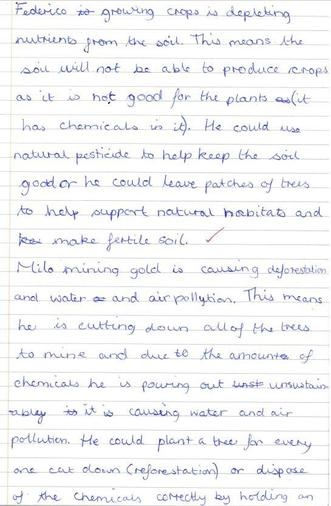 Federico growing crops is depleting
nutrients from the soil. This means the
soil will not be able to produce crops
as it is not good for the plants (it
has chemicals in it). He could use
natural pesticide to help keep the soil
good or he could leave patches of trees
to help support natural habitats and
make fertile soil.
Milo mining gold is causing deforestation
and water and air pollution. This means
he is cutting down all of the trees
to mine and due to the amounts of
chemicals he is pouring out unsustain
ably it is causing water and air
pollution. He could plant a tree for every
one cut down (reforestation) or dispose
of the chemicals correctly by holding an